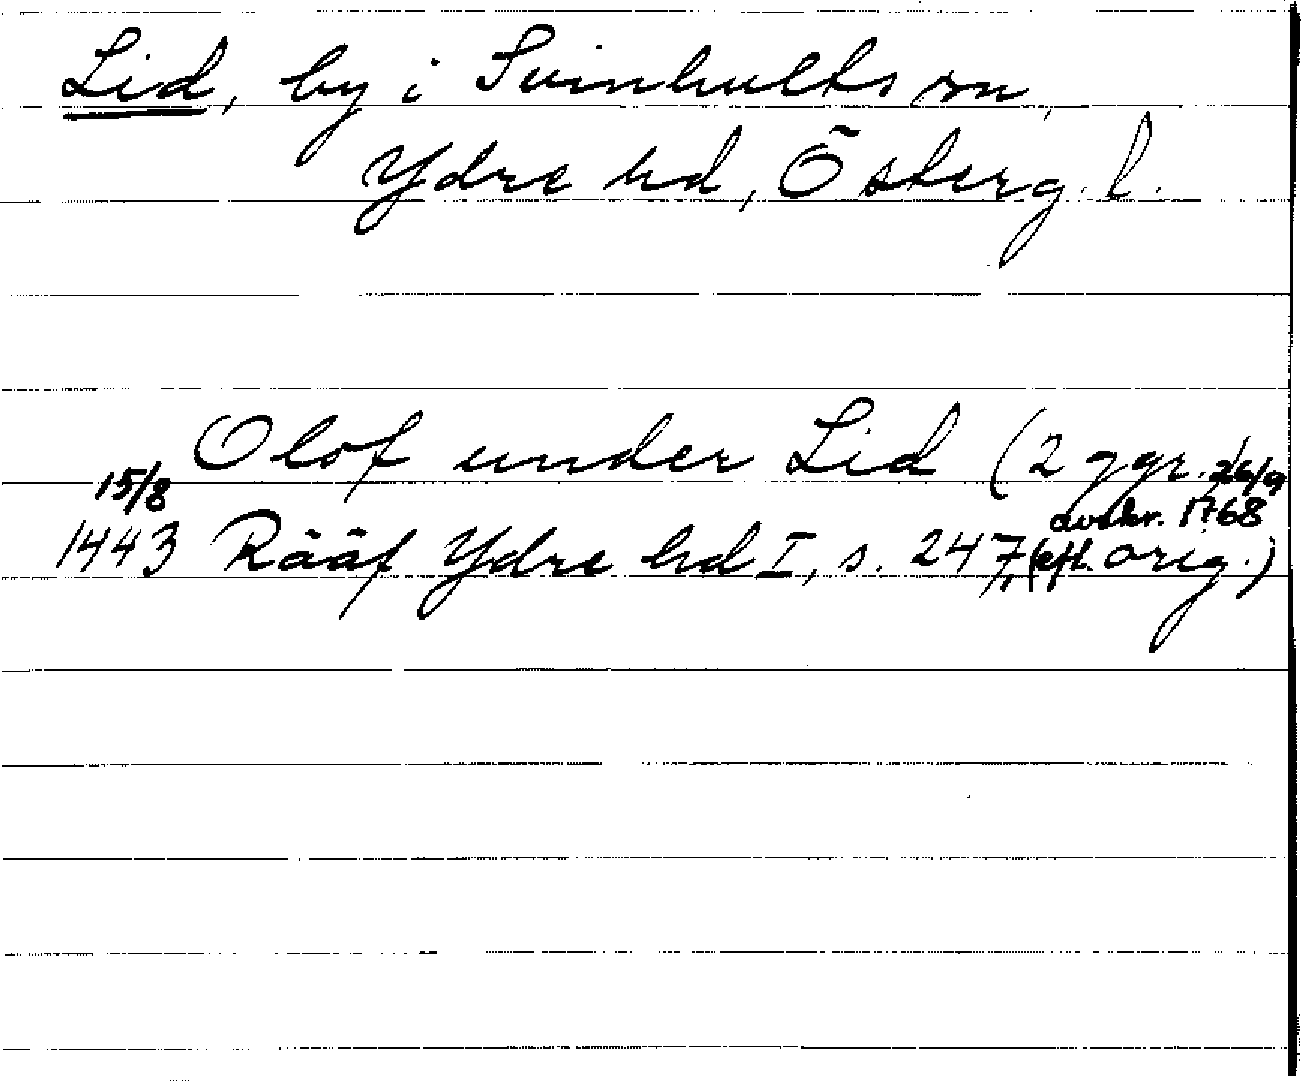 Lid, by i Svinhults sn,
Ydre hd, Österg. l.
Olof under Lid (2 ggr.
15/8 26/9
avskr. 1768
1443 Rääf Ydre hd I, s. 247, (eft. orig.)